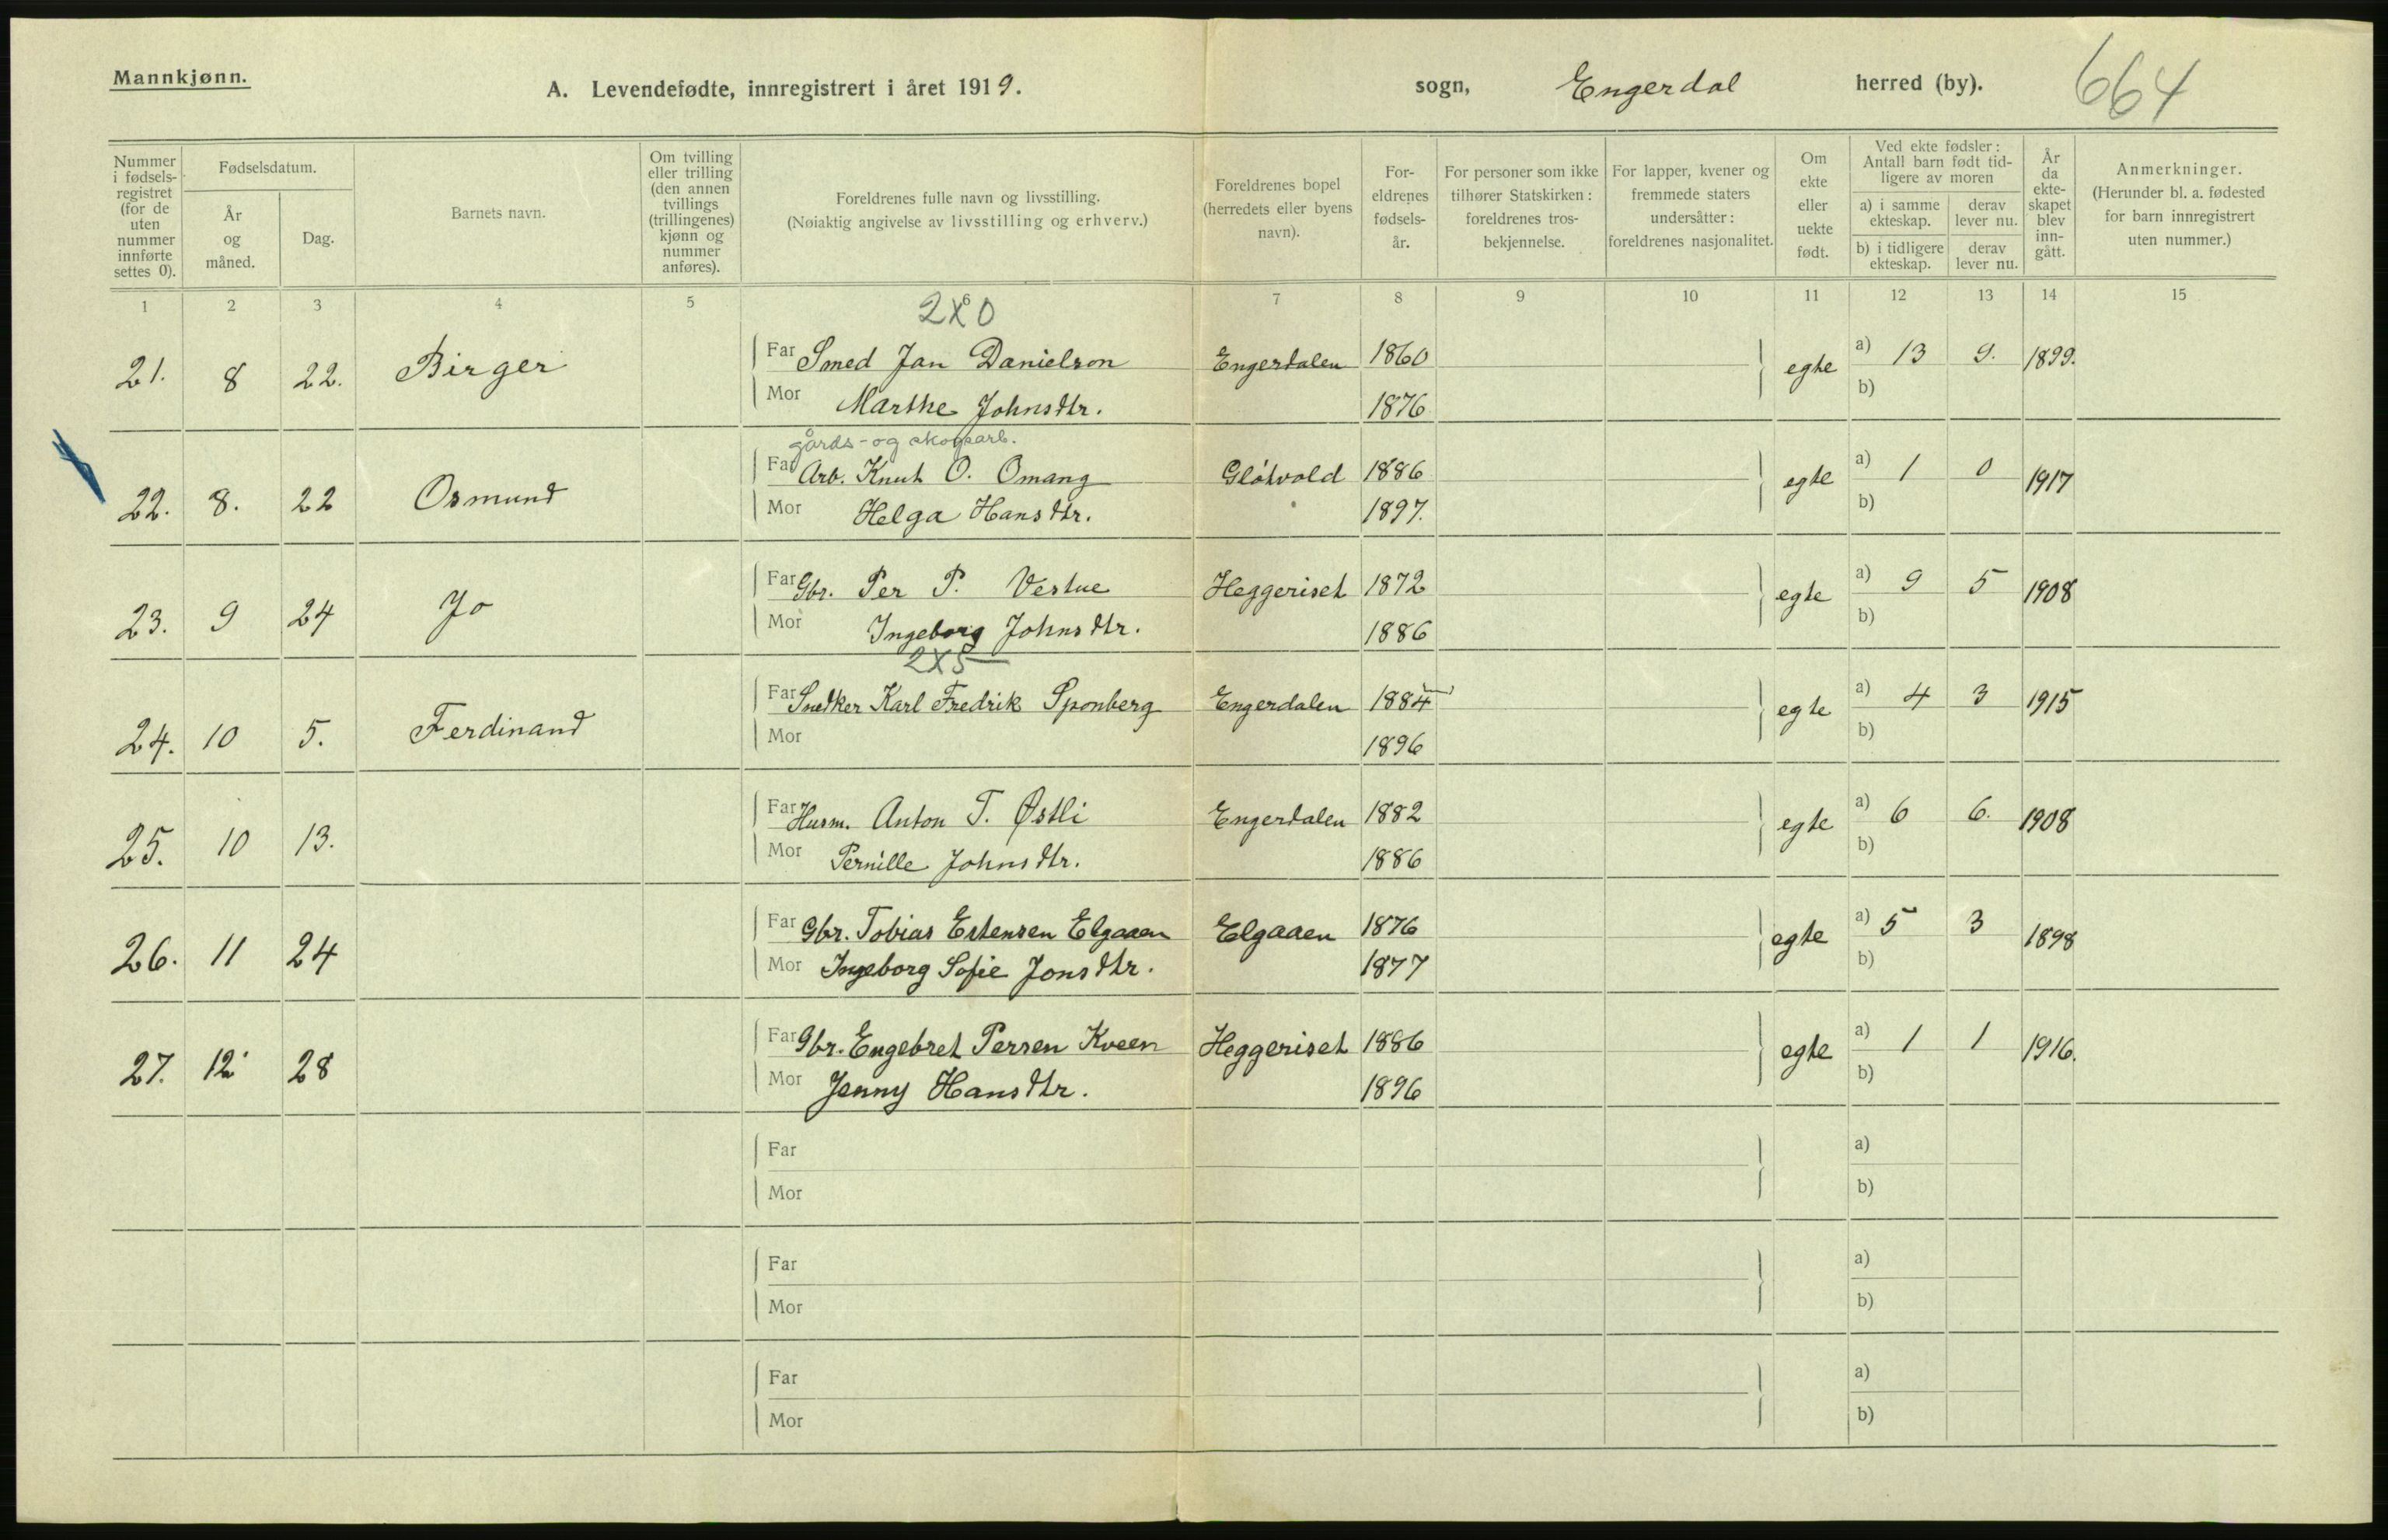 Mannkjønn.
A. Levendefødte, innregistrert i året 1919.
sogn, Engerdal herred (by).
664
Nummer i fødsels-registret (for de uten nummer innførte settes 0).
Fødselsdatum.
År og måned.
Dag.
Barnets navn.
Om tvilling eller trilling (den annen tvillings (trillingenes) kjønn og nummer anføres).
Foreldrenes fulle navn og livsstilling.
(Nøiaktig angivelse av livsstilling og erhverv.)
Foreldrenes bopel (herredets eller byens navn).
For-eldrenes fødsels-år.
For personer som ikke tilhører Statskirken: foreldrenes tros-bekjennelse.
For lapper, kvener og fremmede staters undersåtter: foreldrenes nasjonalitet.
Om ekte eller uekte født.
Ved ekte fødsler: Antall barn født tid-ligere av moren
a) i samme ekteskap.
derav lever nu.
b) i tidligere ekteskap.
derav lever nu.
År da ekte-skapet blev inn-gått.
Anmerkninger.
(Herunder bl. a. fødested for barn innregistrert uten nummer.)
1 2 3 4 5 6 7 8 9 10 11 12 13 14 15
2X0
21. 8 22. Birger Far Smed Jan Danielson Engerdalen 1860 egte a) 13 9. 1899.
Mor Marthe Johnsdtr. 1876 b)
gårds- og skogsarb.
22. 8. 22 Osmund Far Arb. Knut O. Omang Glötvold 1886 egte a) 1 0 1917
Mor Helga Hansdtr. 1897. b)
23. 9 24 Jo Far Gbr. Per P. Vestue Heggeriset 1872 egte a) 9 5 1908
Mor Ingeborg Johnsdtr. 1886 b)
2X5
24. 10 5. Ferdinand Far Snedker Karl Fredrik Sponberg Engerdalen 1884 egte a) 4 3 1915
Mor 1896 b)
25. 10 13. Far Husm. Anton T. Østli Engerdalen 1882 egte a) 6 6. 1908
Mor Pernille Johnsdtr. 1886 b)
26. 11 24 Far Gbr. Tobias Estensen Elgaaen Elgaaen 1876 egte a) 5 3 1898
Mor Ingeborg Sofie Jonsdtr. 1877 b)
27. 12 28 Far Gbr. Engebret Persen Kveen Heggeriset 1886 egte a) 1 1 1916.
Mor Jenny Hansdtr. 1896 b)
Far a)
Mor b)
Far a)
Mor b)
Far a)
Mor b)